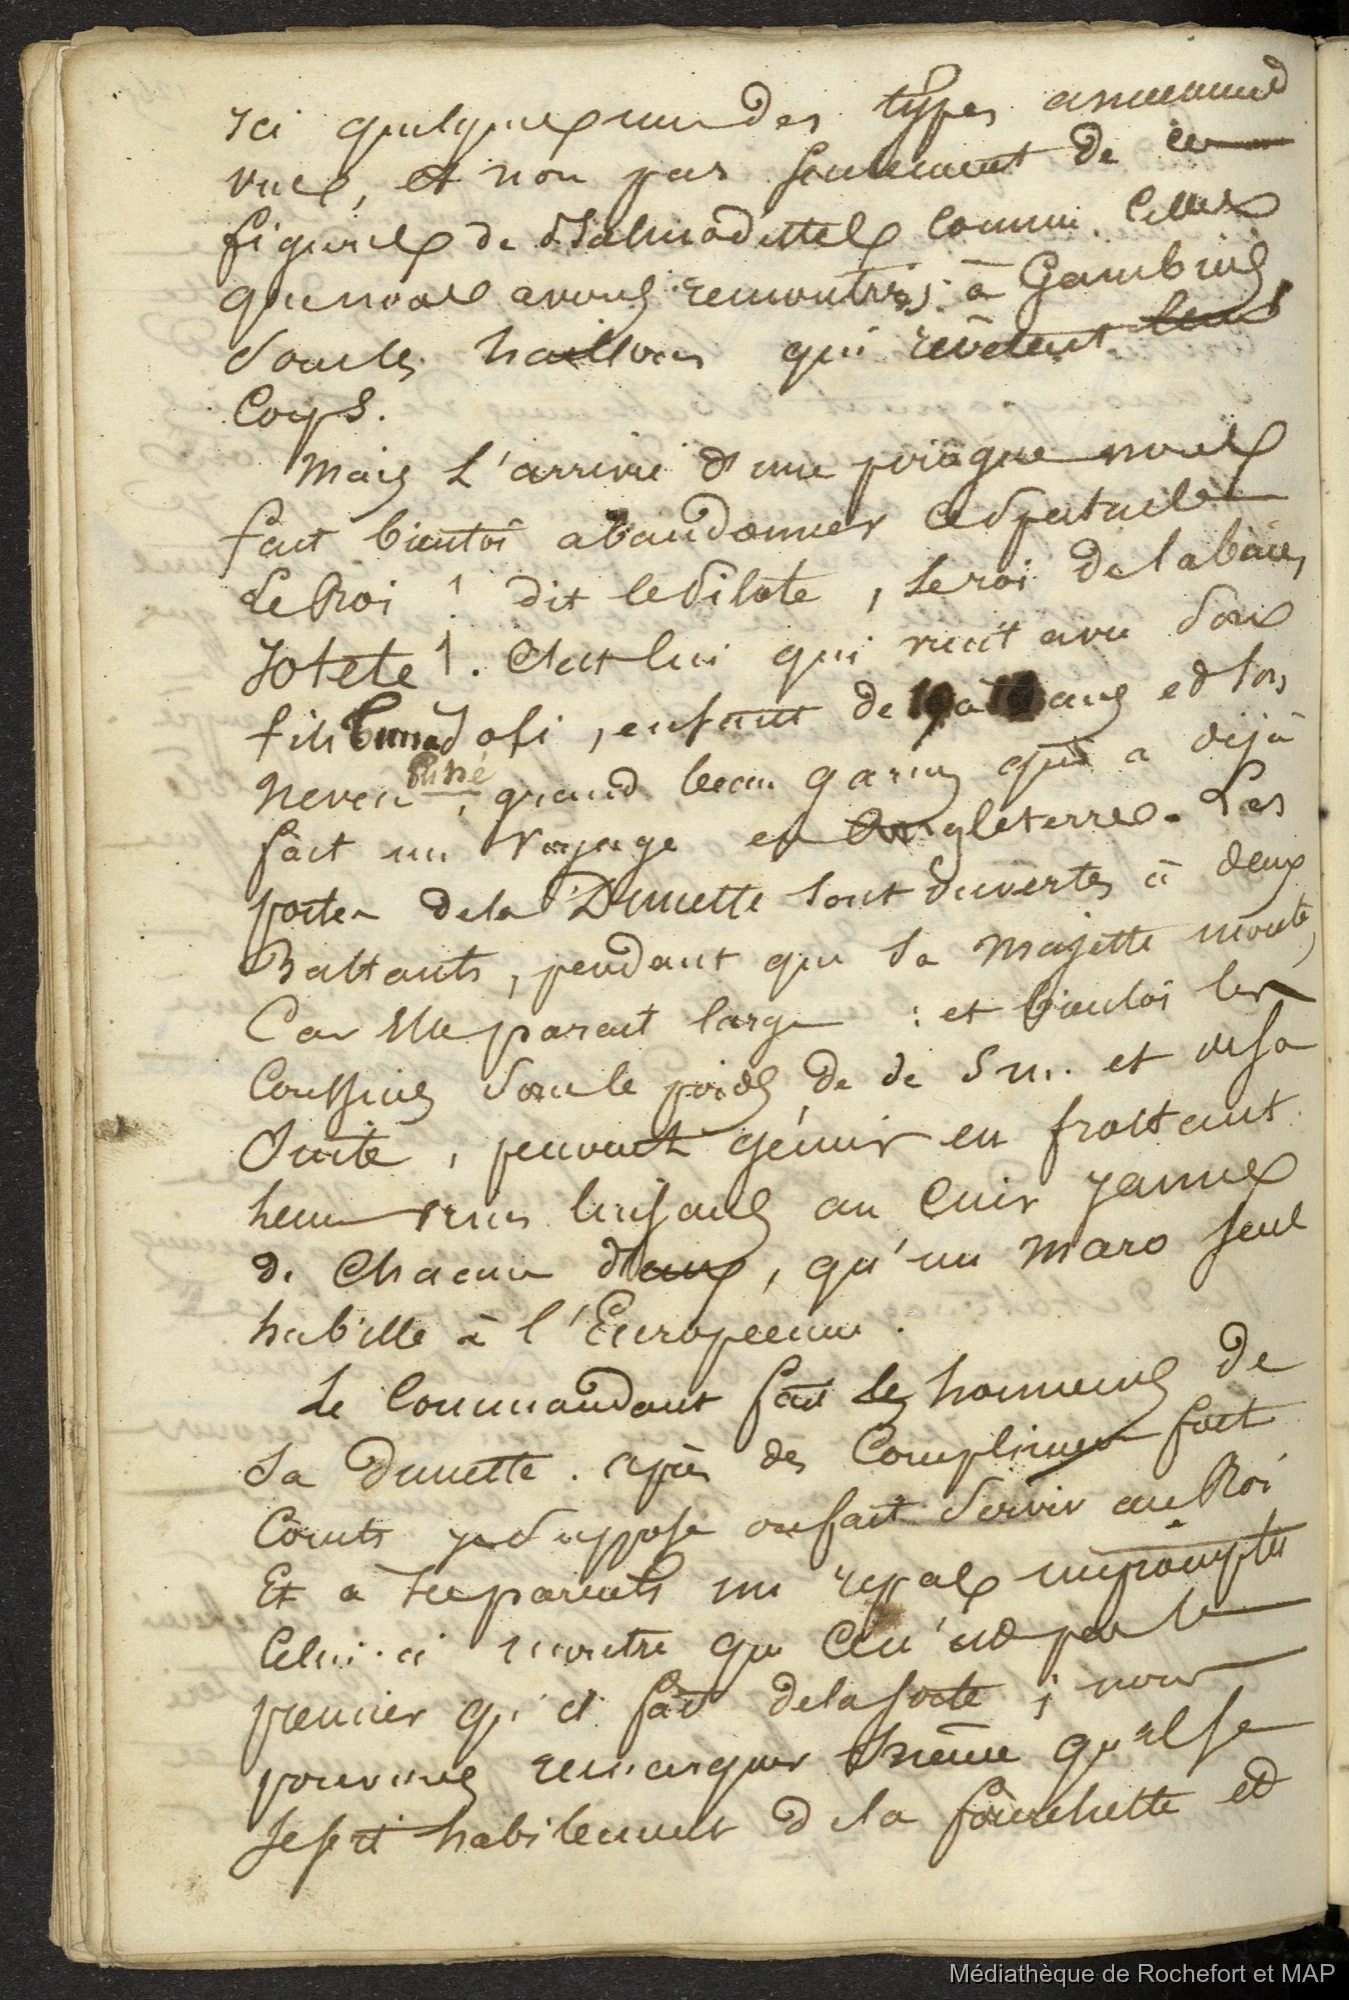 ici quelques uns des types
vues, et non pas seulement de ces
figures de comme Celles
que nous avons remontres à Gambier
sous les haillons qui revêtent leurs
Corps.
Mais L'arrivée d'une pirogue nous
fait bientôt abandonner ce Spectacle
Le Roi ! dit le Pilote, Le roi de la baie,
Iotete !. C'est lui qui vient avec son
fils , enfant de ans et son
neveu , grand beau garçon qui a déjà
fait un Voyage en Angleterre. Les
portes de la Dunette sont ouvertes à deux
Battants, pendant que Sa Majesté monte,
Car Elle parait large : et bientôt les
Coussins sous le poids de de S M. et de sa
Suite, peuvent gémir en frottant
leurs crins luisans au Cuir jaune
de Chacun d'eux, qu'un Maro seul
habille à l'Européenne.
Le Commandant fait les honneurs de
Sa Dunette. après des Complimens fort
Courts je suppose on fait servir au Roi
Et à ses parents un repas impromptu
Celui-ci montre que Ce n'est pas le
premier qu'il fait de la sorte ; nous
pouvons remarquer même qu'il se
sert habilement de la fourchette et
Médiathèque de Rochefort et MAP